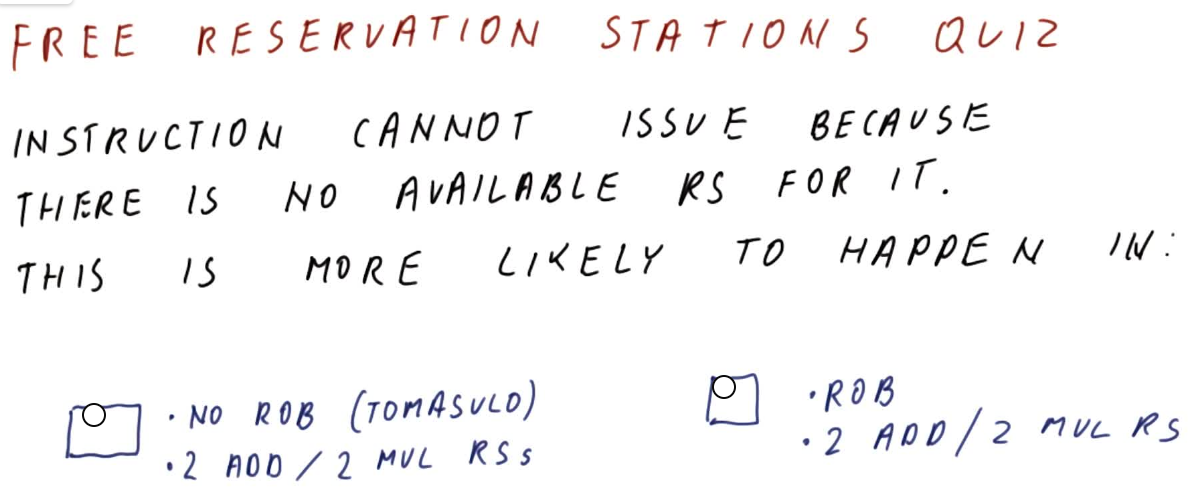 FREE RESERVATION STATIONS QUIZ
INSTRUCTION CANNOT ISSUE BECAUSE
THERE IS NO AVAILABLE RS FOR IT.
THIS IS MORE LIKELY TO HAPPEN IN:
• NO ROB (TOMASULO)
• 2 ADD / 2 MUL RSs
• ROB
• 2 ADD / 2 MUL RS